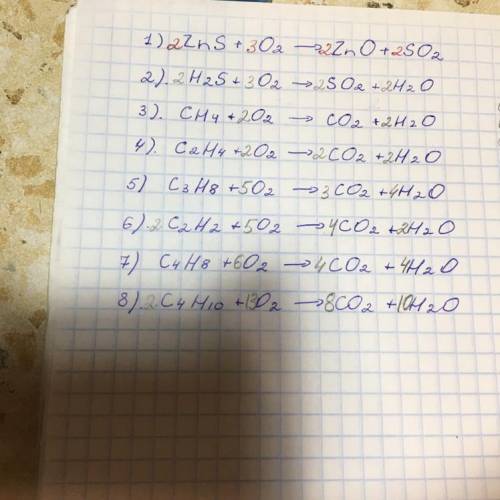 1) 2ZnS + 3O2 → 2ZnO + 2SO2
2). 2H2S + 3O2 → 2SO2 + 2H2O
3). CH4 + 2O2 → CO2 + 2H2O
4). C2H4 + 2O2 → 2CO2 + 2H2O
5) C3H8 + 5O2 → 3CO2 + 4H2O
6). 2C2H2 + 5O2 → 4CO2 + 2H2O
7) C4H8 + 6O2 → 4CO2 + 4H2O
8). 2C4H10 + 13O2 → 8CO2 + 10H2O